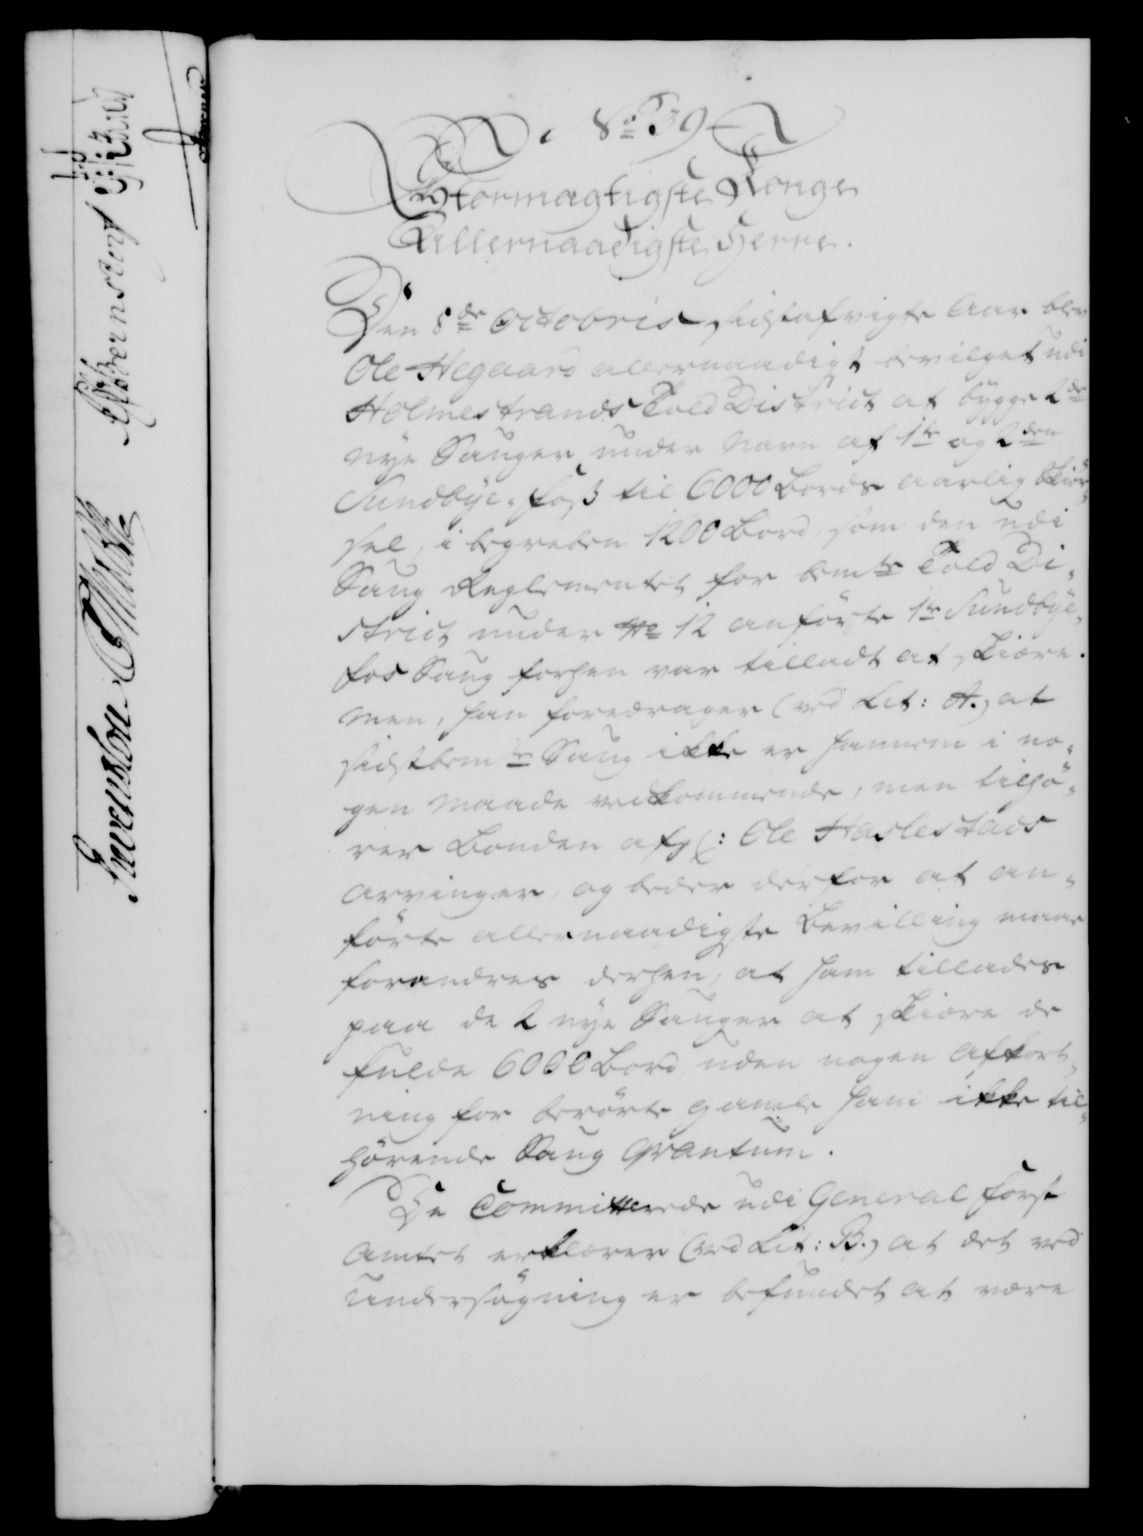 No 39
Stormægtigste Konge
Allernaadigste Herre.
Den 8de Octobris sidstafvigte Aar blev
Ole Hegaard allernaadigst bevilget udi
Holmestrands Told District at bygge 2de
nye Sauger under Navn af 1te og 2den
Sundbye-foss til 6000 Bords aarlig Skiør-
sel, i begreben 1200 Bord, som den udi
Saug Reglementet for bemte Told Di-
strict under No 12 anførte 1te Sundbye-
fos Saug forhen var tilladt at skiære.
Men, han foredrager (ved Lit: A.) at
sidstbemte Saug ikke er hannem i no-
gen Maade vedkommende, men tilhø-
rer Bonden afg: Ole Haslestads
Arvinger, og beder derfor at an-
førte allernaadigste Bevilling maae
forandres derhen, at ham tillades
paa de 2 nye Sauger at skiære de
fulde 6000 Bord, uden nogen Afkort-
ning for berørte gamle ham ikke til-
hørende Saug Qvantum.
De Committerede udi General Forst
Amtet erklærer (ved Lit: B.) at det ved
Undersøgning er befundet at være